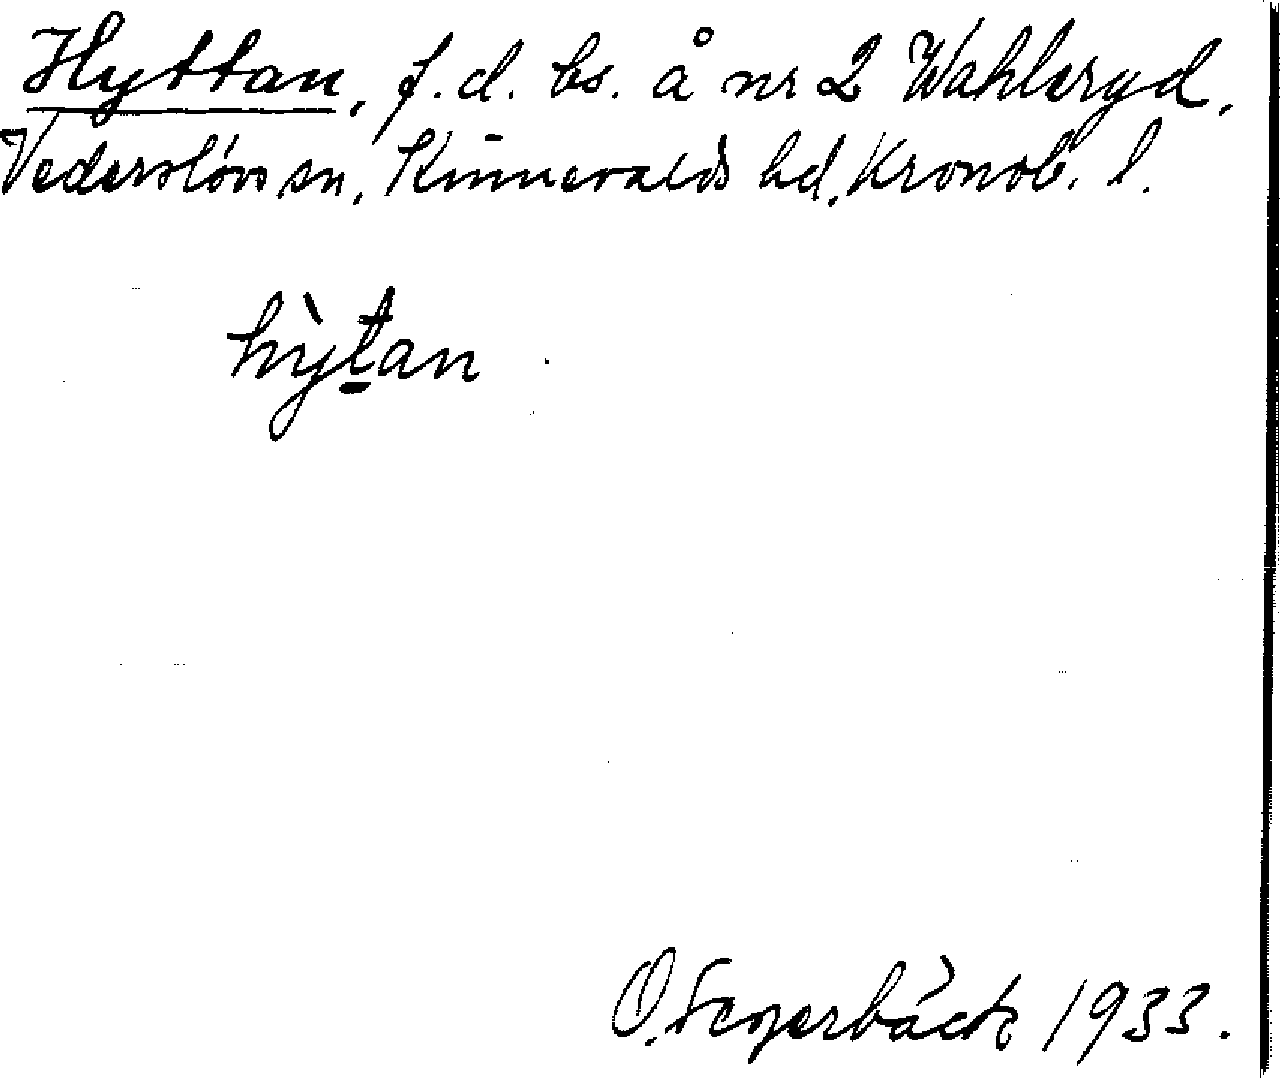 Hyttan, f.d. bs. å nr 2 Wahleryd,
Vederslövs sn, Kinnevalds hd, Kronob. l.
hỳtan
O. Segerbäck 1933.